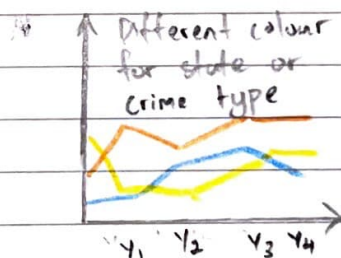 Different colour
for state or
crime type
Y1 Y2 Y3 Y4